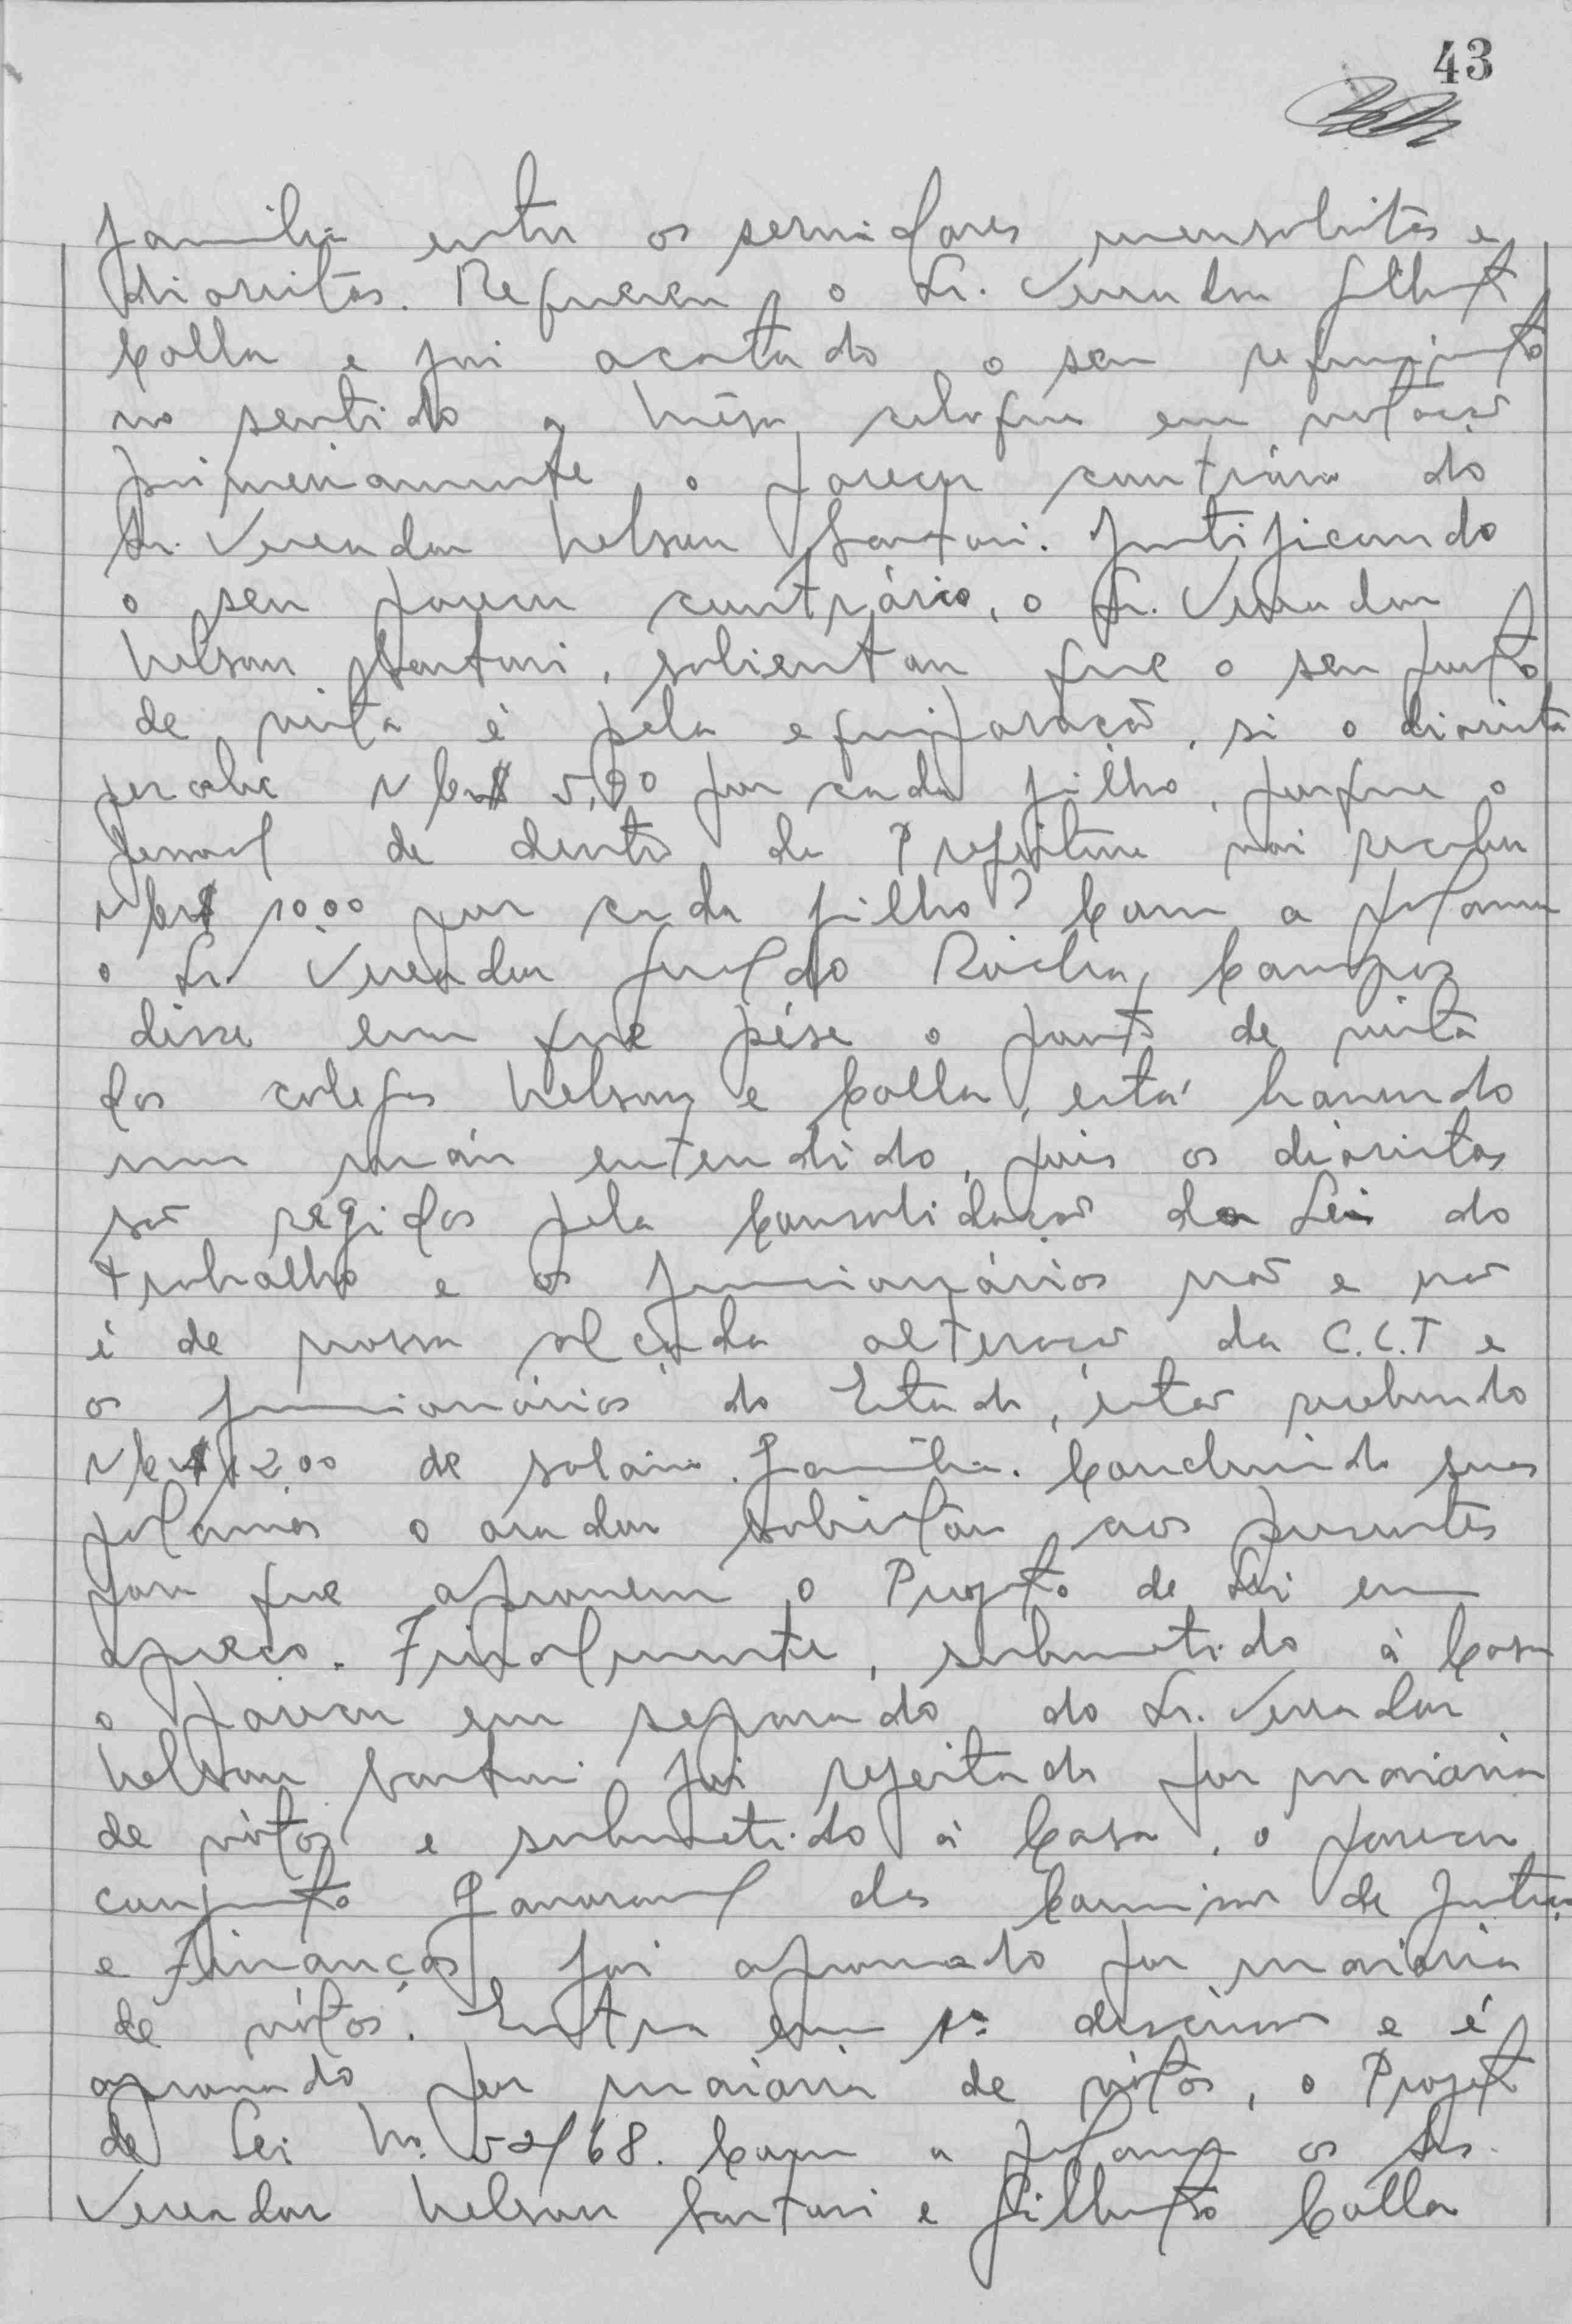 43
familia entre os servidores mensalistas e
diaristas. Requereu, o Sr. Vereador Gilberto
Colla e foi acatado o seu requerimento
no sentido a Mêsa, coloque em votação
primeiramente o parecer contrário do
Sr. Vereador Nelson Santori. Justificando
o seu parecer contrário, o Sr. Vereador
Nelson Santori, salientou que o seu ponto
de vista é pela equiparação, si o diarista
percebe NCr$ 5,00 por cada filho, porque o
pessoal de dentro da Prefeitura vai receber
NCr$ 10,00 por cada filho? Com a palavra
o Sr. Vereador Geraldo Rocha Campos
disse em que pése o ponto de vista
dos colegas Nelson e Colla, está havendo
um máu entendido, pois os diaristas
são regidos pela Consolidação da Lei do
trabalho e os funcionários não e não
é de nossa alçada alteração da C.L.T e
os funcionários do Estado, estão recebendo
NCr$ 12,00 de salario familia. Concluindo suas
palavras o orador solicitou aos presentes
para que aprovem o Projeto de Lei em
aprêço. Finalmente, submetido à Casa
o parecer em separado do Sr. Vereador
Nelson Santori foi rejeitado por maioria
de vótos e submetido à Casa, o parecer
conjunto favoravel das Comissões de Justiça
e Finanças, foi aprovado por maioria
de vótos. Entra em 1ª discussão e é
aprovado por maioria de vótos, o Projeto
de Lei Nº 52/68. Com a palavra os Srs.
Vereador Nelson Santori e Gilberto Colla